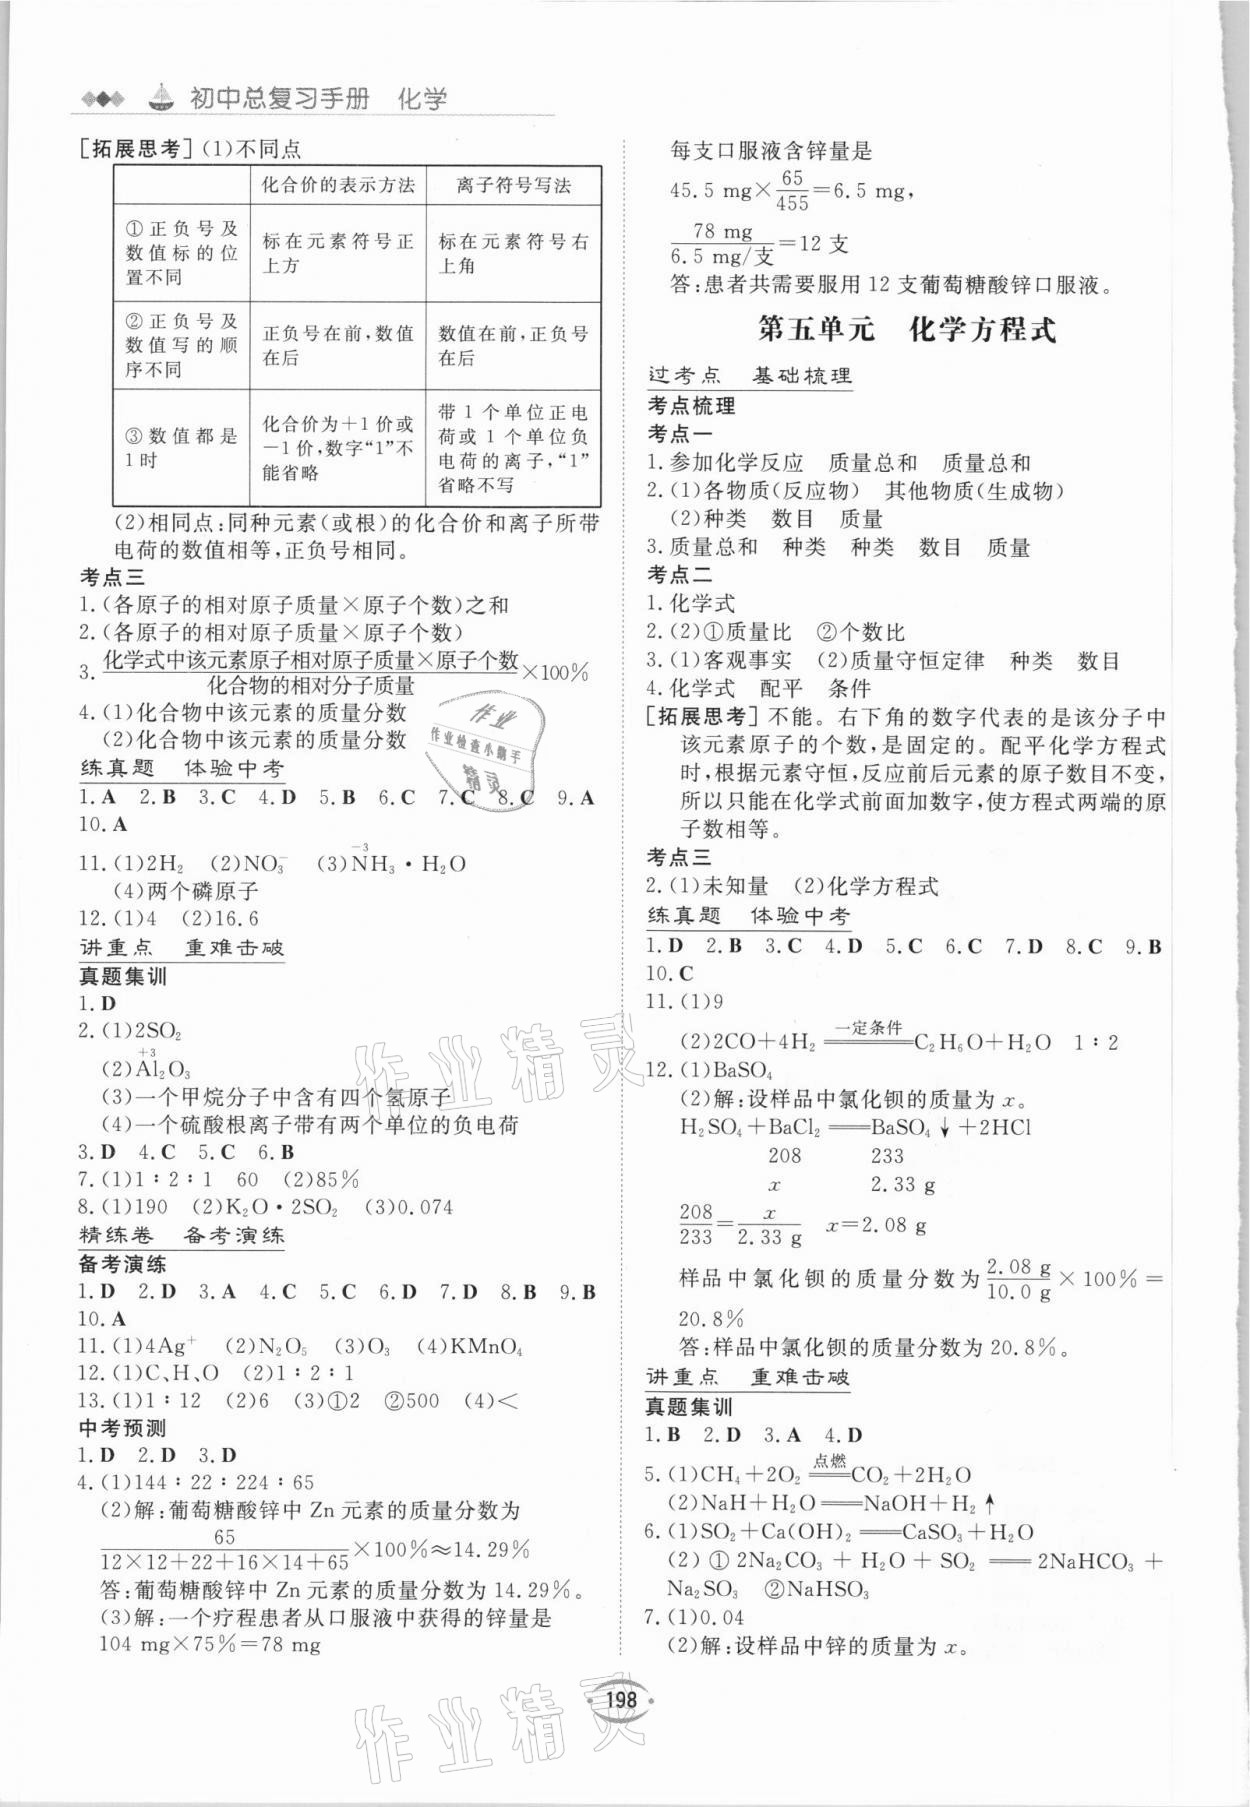 初中总复习手册 化学
[拓展思考](1)不同点
化合价的表示方法 离子符号写法
①正负号及数值标的位置不同 标在元素符号正上方 标在元素符号右上角
②正负号及数值写的顺序不同 正负号在前,数值在后 数值在前,正负号在后
③数值都是1时 化合价为+1价或-1价,数字“1”不能省略 带1个单位正电荷或1个单位负电荷的离子,“1”省略不写
(2)相同点:同种元素(或根)的化合价和离子所带
电荷的数值相等,正负号相同。
考点三
1.(各原子的相对原子质量×原子个数)之和
2.(各原子的相对原子质量×原子个数)
3.化学式中该元素原子相对原子质量×原子个数/化合物的相对分子质量×100%
4.(1)化合物中该元素的质量分数
(2)化合物中该元素的质量分数
练真题 体验中考
1.A 2.B 3.C 4.D 5.B 6.C 7.C 8.C 9.A
10.A
11.(1)2H₂ (2)NO₃⁻ (3)N⁻³H₃·H₂O
(4)两个磷原子
12.(1)4 (2)16.6
讲重点 重难击破
真题集训
1.D
2.(1)2SO₂
(2)Al⁺³₂O₃
(3)一个甲烷分子中含有四个氢原子
(4)一个硫酸根离子带有两个单位的负电荷
3.D 4.C 5.C 6.B
7.(1)1∶2∶1 60 (2)85%
8.(1)190 (2)K₂O·2SO₂ (3)0.074
精练卷 备考演练
备考演练
1.D 2.D 3.A 4.C 5.C 6.D 7.D 8.B 9.B
10.A
11.(1)4Ag⁺ (2)N₂O₅ (3)O₃ (4)KMnO₄
12.(1)C、H、O (2)1∶2∶1
13.(1)1∶12 (2)6 (3)①2 ②500 (4)<
中考预测
1.D 2.D 3.D
4.(1)144∶22∶224∶65
(2)解:葡萄糖酸锌中Zn元素的质量分数为
65/12×12+22+16×14+65×100%≈14.29%
答:葡萄糖酸锌中Zn元素的质量分数为14.29%。
(3)解:一个疗程患者从口服液中获得的锌量是
104 mg×75%=78 mg
每支口服液含锌量是
45.5 mg×65/455=6.5 mg,
78 mg/6.5 mg/支=12支
答:患者共需要服用12支葡萄糖酸锌口服液。
第五单元 化学方程式
过考点 基础梳理
考点梳理
考点一
1.参加化学反应 质量总和 质量总和
2.(1)各物质(反应物) 其他物质(生成物)
(2)种类 数目 质量
3.质量总和 种类 种类 数目 质量
考点二
1.化学式
2.(2)①质量比 ②个数比
3.(1)客观事实 (2)质量守恒定律 种类 数目
4.化学式 配平 条件
[拓展思考]不能。右下角的数字代表的是该分子中
该元素原子的个数,是固定的。配平化学方程式
时,根据元素守恒,反应前后元素的原子数目不变,
所以只能在化学式前面加数字,使方程式两端的原
子数相等。
考点三
2.(1)未知量 (2)化学方程式
练真题 体验中考
1.D 2.B 3.C 4.D 5.C 6.C 7.D 8.C 9.B
10.C
11.(1)9
(2)2CO+4H₂ 一定条件 C₂H₆O+H₂O 1∶2
12.(1)BaSO₄
(2)解:设样品中氯化钡的质量为x。
H₂SO₄+BaCl₂══BaSO₄↓+2HCl
208 233
x 2.33 g
208/233=x/2.33 g x=2.08 g
样品中氯化钡的质量分数为2.08 g/10.0 g×100%=
20.8%
答:样品中氯化钡的质量分数为20.8%。
讲重点 重难击破
真题集训
1.B 2.D 3.A 4.D
5.(1)CH₄+2O₂ 点燃 CO₂+2H₂O
(2)NaH+H₂O══NaOH+H₂↑
6.(1)SO₂+Ca(OH)₂══CaSO₃+H₂O
(2)①2Na₂CO₃+H₂O+SO₂══2NaHCO₃+
Na₂SO₃ ②NaHSO₃
7.(1)0.04
(2)解:设样品中锌的质量为x。
198
作业
作业检查小帮手
精灵
作业精灵
作业精灵